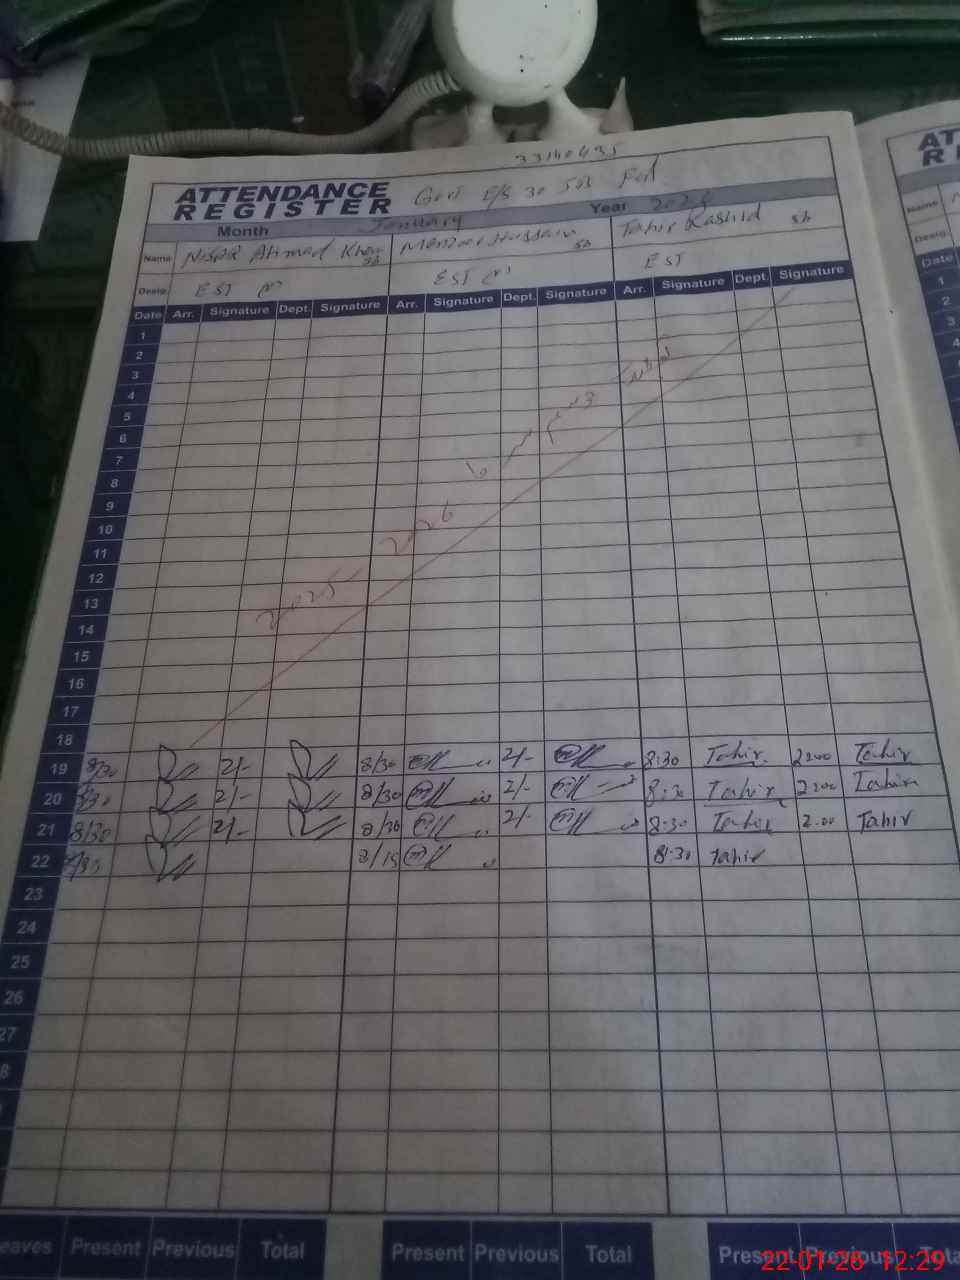 33140435
ATTENDANCE REGISTER Govt E/S 30
Month January Year
Name NISAR Ahmad Khan sb Manzoor Hussain sb Tahir Rashid sb
Desig. EST EST EST
Date Arr. Signature Dept. Signature Arr. Signature Dept. Signature Arr. Signature Dept. Signature
1
2
3
4
5
6
7
8
9
10
11
12
13
14
15
16
17
18
2025 - 2026
19 8/30 2/- 8/30 2/- 8:30 Tahir Tahir
20 8/30 2/- 8/30 2/- 8:30 Tahir Tahir
21 8/30 2/- 8/30 2/- 8:30 Tahir 2.00 Tahir
22 8/15 8:30 Tahir
23
24
25
26
27
8
eaves Present Previous Total Present Previous Total Present Previous Tota
AT
R
Name
Desig.
Date
1
2
3
4
22-01-26 12:29